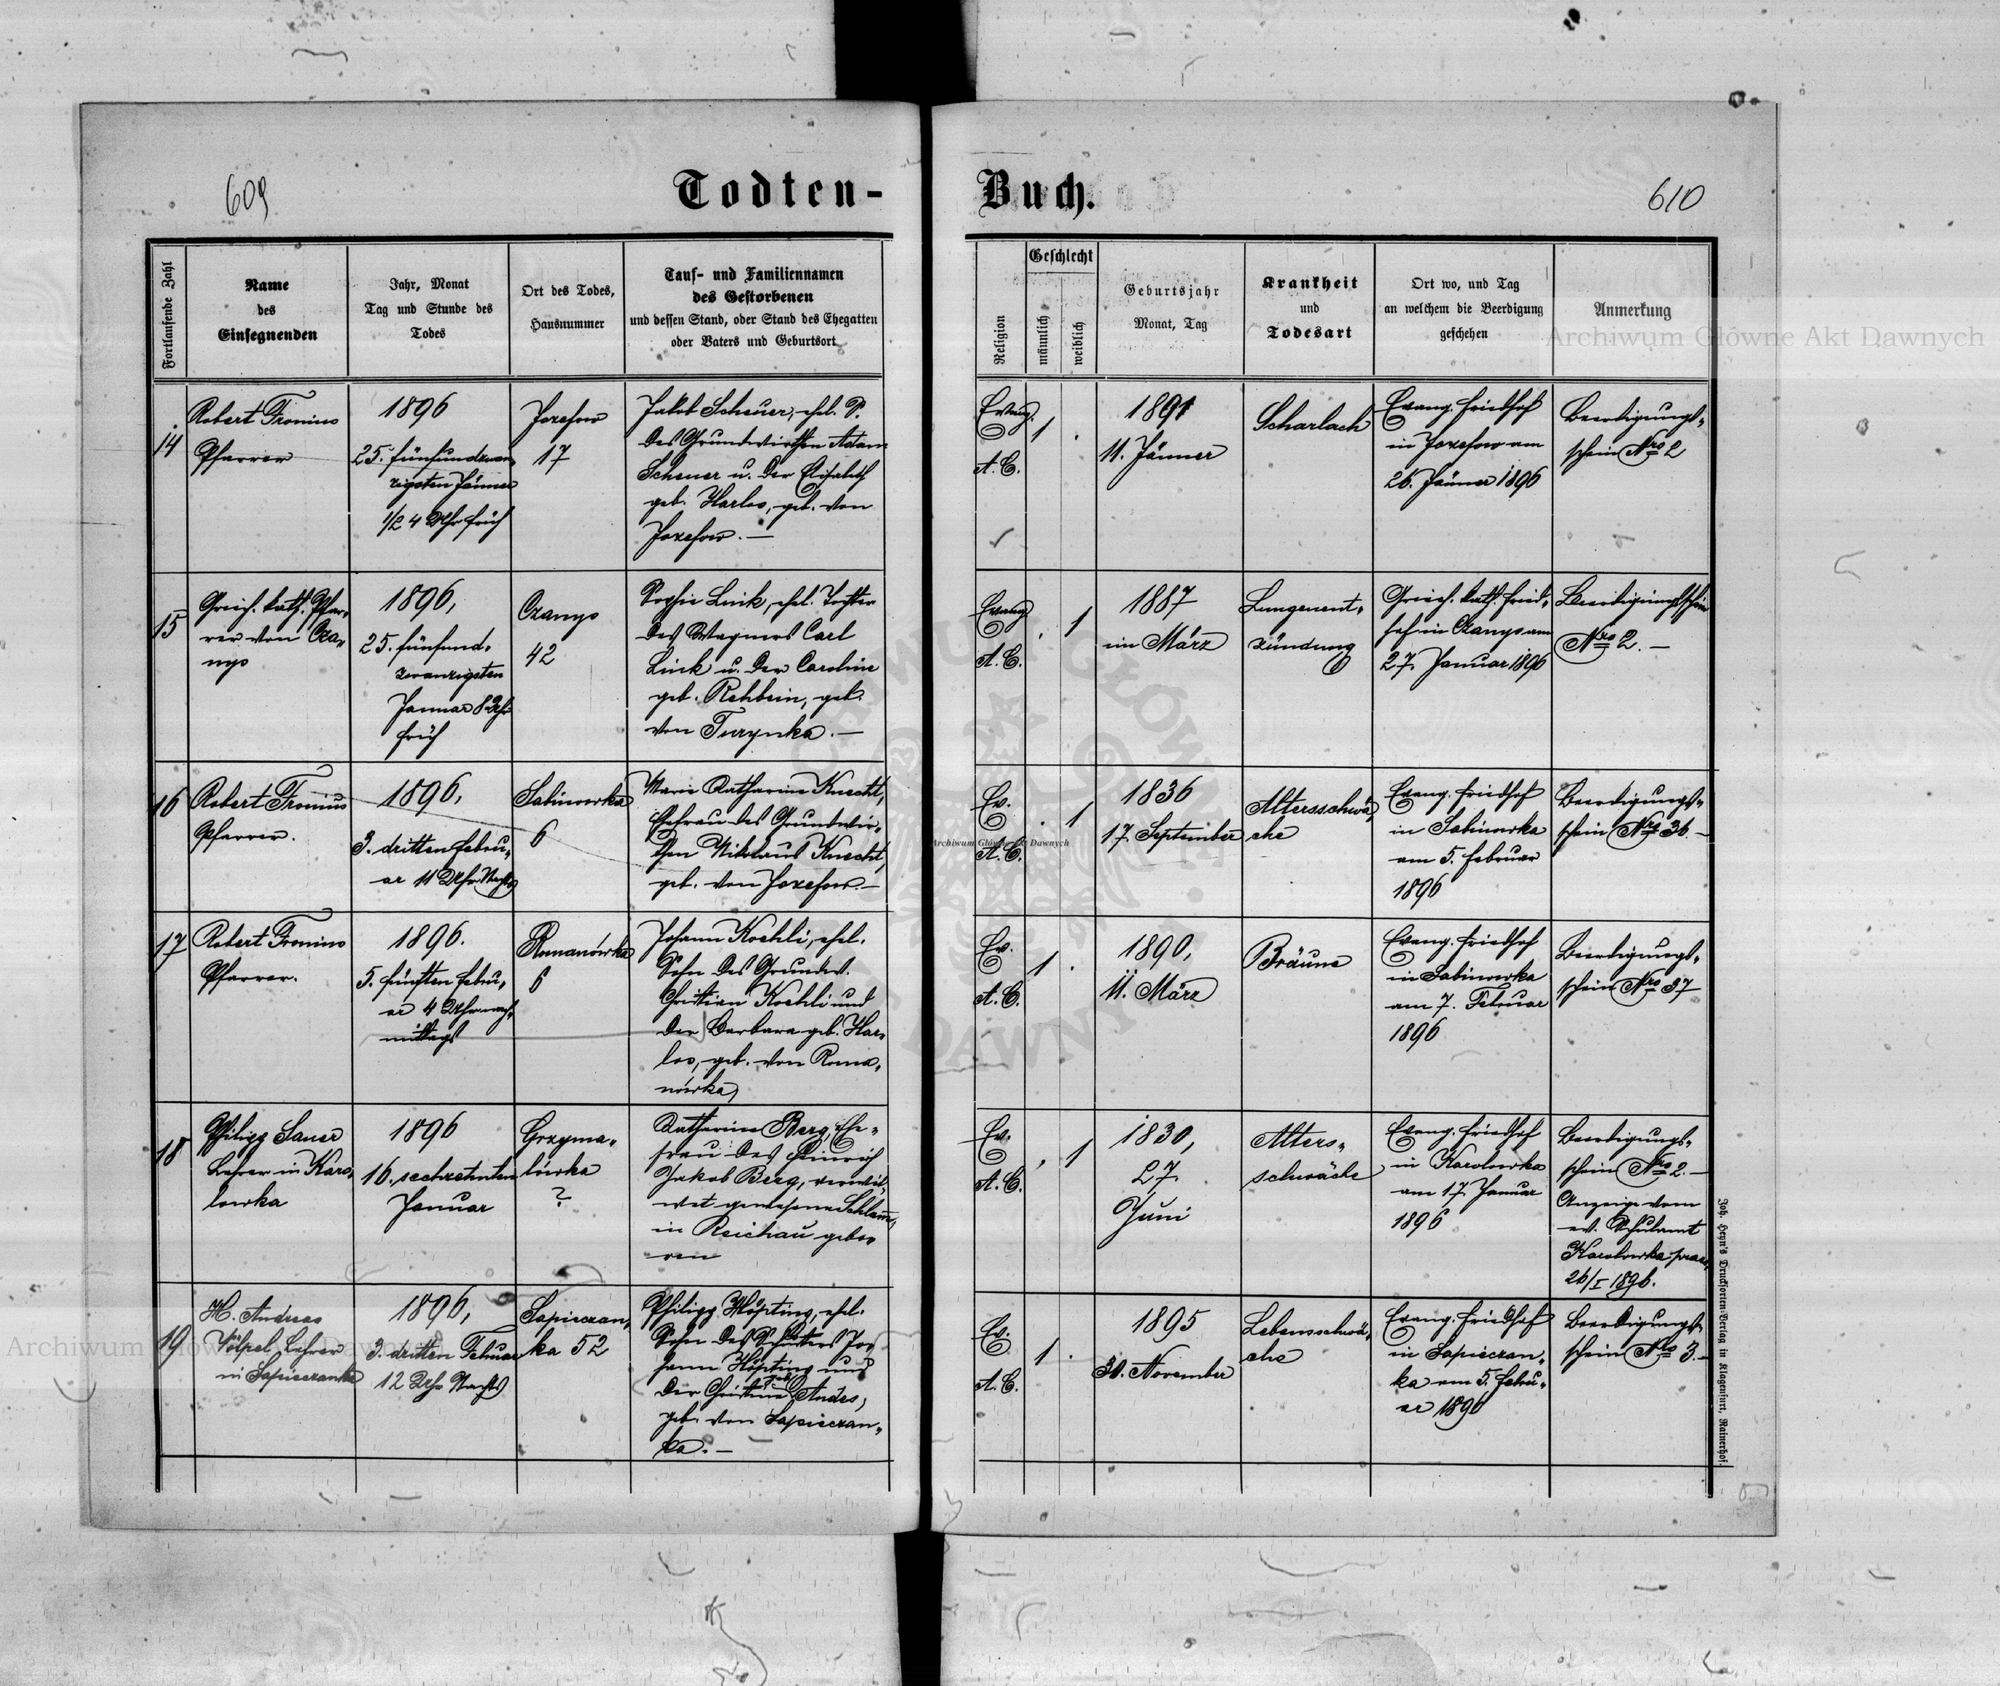 609
Todten-
Buch.
610
Fortlaufende Zahl
Name
des
Einsegnenden
Jahr, Monat
Tag und Stunde des
Todes
Ort des Todes,
Hausnummer
Tauf- und Familiennamen
des Gestorbenen
und dessen Stand, oder Stand des Ehegatten
oder Vaters und Geburtsort
Religion
Geschlecht
männlich
weiblich
Geburtsjahr
Monat, Tag
Krankheit
und
Todesart
Ort wo, und Tag
an welchem die Beerdigung
geschehen
Anmerkung
14
Robert Fronius
Pfarrer
1896
25. fünfundzwan-
zigsten Jänner
1/2 4 Uhr früh
Jozefow
17
Jakob Scheuer, ehel. S.
des Grundwirthen Adam
Scheuer u. der Elisabeth
geb. Harlos, geb. von
Jozefow. —
Evang.
A. C.
1 .
1891
11. Jänner
Scharlach
Evang. Friedhof
in Jozefow am
26. Jänner 1896
Beerdigungs-
schein Nro 2
15
Griech. kath. Pfar-
rer von Cza-
nyz
1896,
25. fünfund-
zwanzigsten
Januar 8 Uhr
früh
Czanyz
42
Sophie Link, ehel. Tochter
des Wagners Carl
Link u. der Caroline
geb. Rehbein, geb.
von Turynka. —
Evang
A. C.
. 1
1887
im März
Lungenent-
zündung
Griech. kath. Fried-
hof in Czanyz am
27. Januar 1896
Beerdigungsschein
Nro 2. —
16
Robert Fronius
Pfarrer.
1896,
3. dritten Febru-
ar 11 Uhr Nachts
Sabinowka
6
Marie Katharine Knecht,
Ehefrau des Grundwir-
then Nikolaus Knecht,
geb. von Jozefow. —
Ev.
A. C.
. 1
1836
17. September
Altersschwä-
che
Evang. Friedhof
in Sabinowka
am 5. Februar
1896
Beerdigungs-
schein Nro 36. —
17
Robert Fronius
Pfarrer.
1896.
5. fünften Febru-
ar 4 Uhr nach-
mittags
Romanówka
6
Johann Koehli, ehel.
Sohn des Grundw.
Christian Koehli und
der Barbara geb. Har-
los, geb. von Roma-
nówka
Ev.
A. C.
1 .
1890,
11. März
Bräune
Evang. Friedhof
in Sabinowka
am 7. Februar
1896
Beerdigungs-
schein Nro 37
18
Philipp Sauer
Lehrer in Karo-
lowka
1896
16. sechzehnten
Januar
Grzyma-
lówka
?
Katharine Berg, Ehe-
frau des Heinrich
Jakob Berg, verwit-
wet gewesene Schlamm,
in Reichau gebo-
ren
Ev.
A. C.
. 1
1830,
27.
Juni
Alters-
schwäche
Evang. Friedhof
in Karolowka
am 17. Januar
1896
Beerdigungs-
schein Nro 2. —
Anzeige vom
ev. Schulamt
Karolowka praes.
26/I 1896.
19
H. Andreas
Völpel, Lehrer
in Sapieczanka
1896,
3. dritten Februar
12 Uhr Nachts
Sapieczan-
ka 52
Philipp Höpting, ehel.
Sohn des Johann
Höpting und
der Christine geb. Andes,
geb. von Sapieczan-
ka. —
Ev.
A. C.
1 .
1895
30. November
Lebensschwä-
che
Evang. Friedhof
in Sapieczan-
ka am 5. Febru-
ar 1896
Beerdigungs-
schein Nro 3. —
Joh. Heyn's Drucksorten-Verlag in Klagenfurt, Rainerhof.
Archiwum Główne Akt Dawnych
Archiwum Główne Akt Dawnych
Archiwum Główne Akt Dawnych